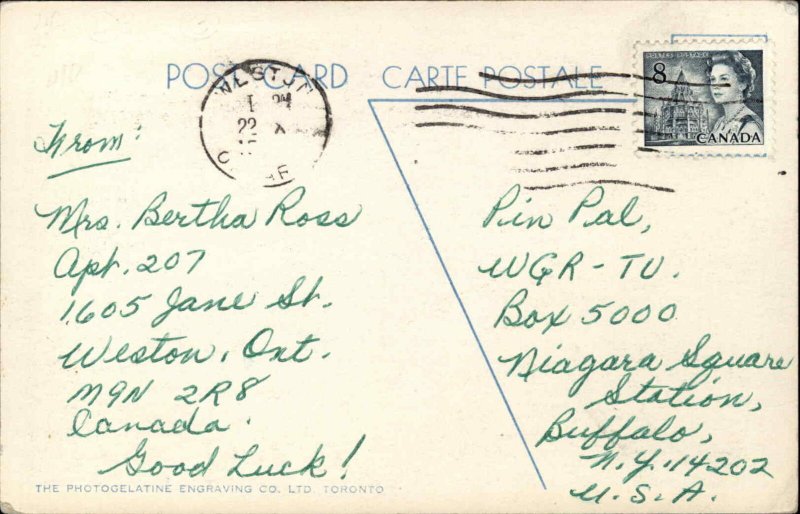 POST CARD CARTE POSTALE
8
CANADA
22
From:
Mrs. Bertha Ross
Apt. 207
1605 Jane St.
Weston, Ont.
M9N 2R8
Canada.
Good Luck!
Pin Pal,
WGR-TV.
Box 5000
Niagara Square
Station,
Buffalo,
N.Y. 14202
U.S.A.
THE PHOTOGELATINE ENGRAVING CO. LTD. TORONTO